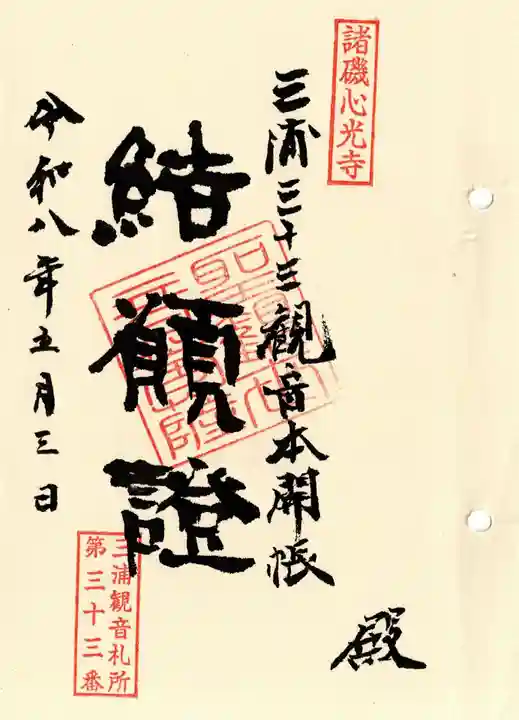 諸磯心光寺
殿
三浦三十三観音本開帳
結願證
三浦観音札所
第三十三番
令和八年五月三日